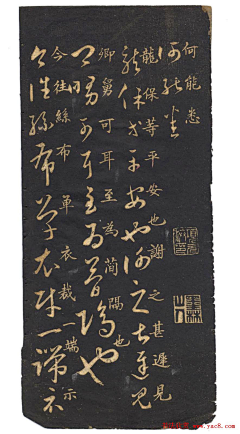 何能悉
何能悉
龍保等平安也謝之甚遲見
龍保等平安也謝之甚遲見
卿舅可耳至為簡隔也
卿舅可耳至為簡隔也
今往絲布單衣裁一端示
今往絲布單衣財一端示
www.yac8.com